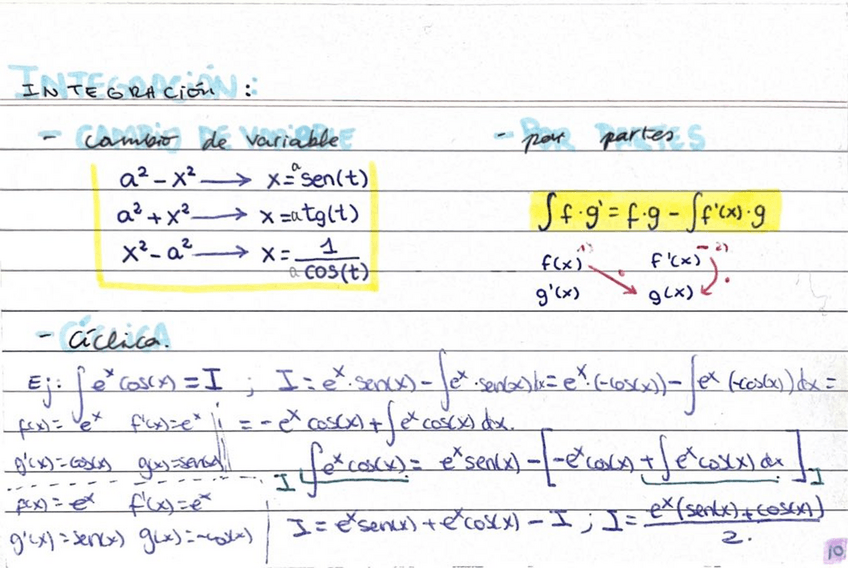 INTEGRACIÓN:
- cambio de variable
a² - x² → x = a sen(t)
a² + x² → x = a tg(t)
x² - a² → x = 1 / a cos(t)
- por partes
∫ f · g' = f · g - ∫ f'(x) · g
f(x) 1) f'(x) - 2)
g'(x) g(x)
- Cíclica.
Ej: ∫ eˣ cos(x) = I ; I = eˣ · sen(x) - ∫ eˣ · sen(x) dx = eˣ · (-cos(x)) - ∫ eˣ (-cos(x)) dx =
f(x) = eˣ f'(x) = eˣ = - eˣ cos(x) + ∫ eˣ cos(x) dx.
g'(x) = cos(x) g(x) = sen(x) I ∫ eˣ cos(x) = eˣ sen(x) - [-eˣ cos(x) + ∫ eˣ cos(x) dx] I
f(x) = eˣ f'(x) = eˣ
g'(x) = sen(x) g(x) = -cos(x) I = eˣ sen(x) + eˣ cos(x) - I ; I = eˣ (sen(x) + cos(x)) / 2.
10